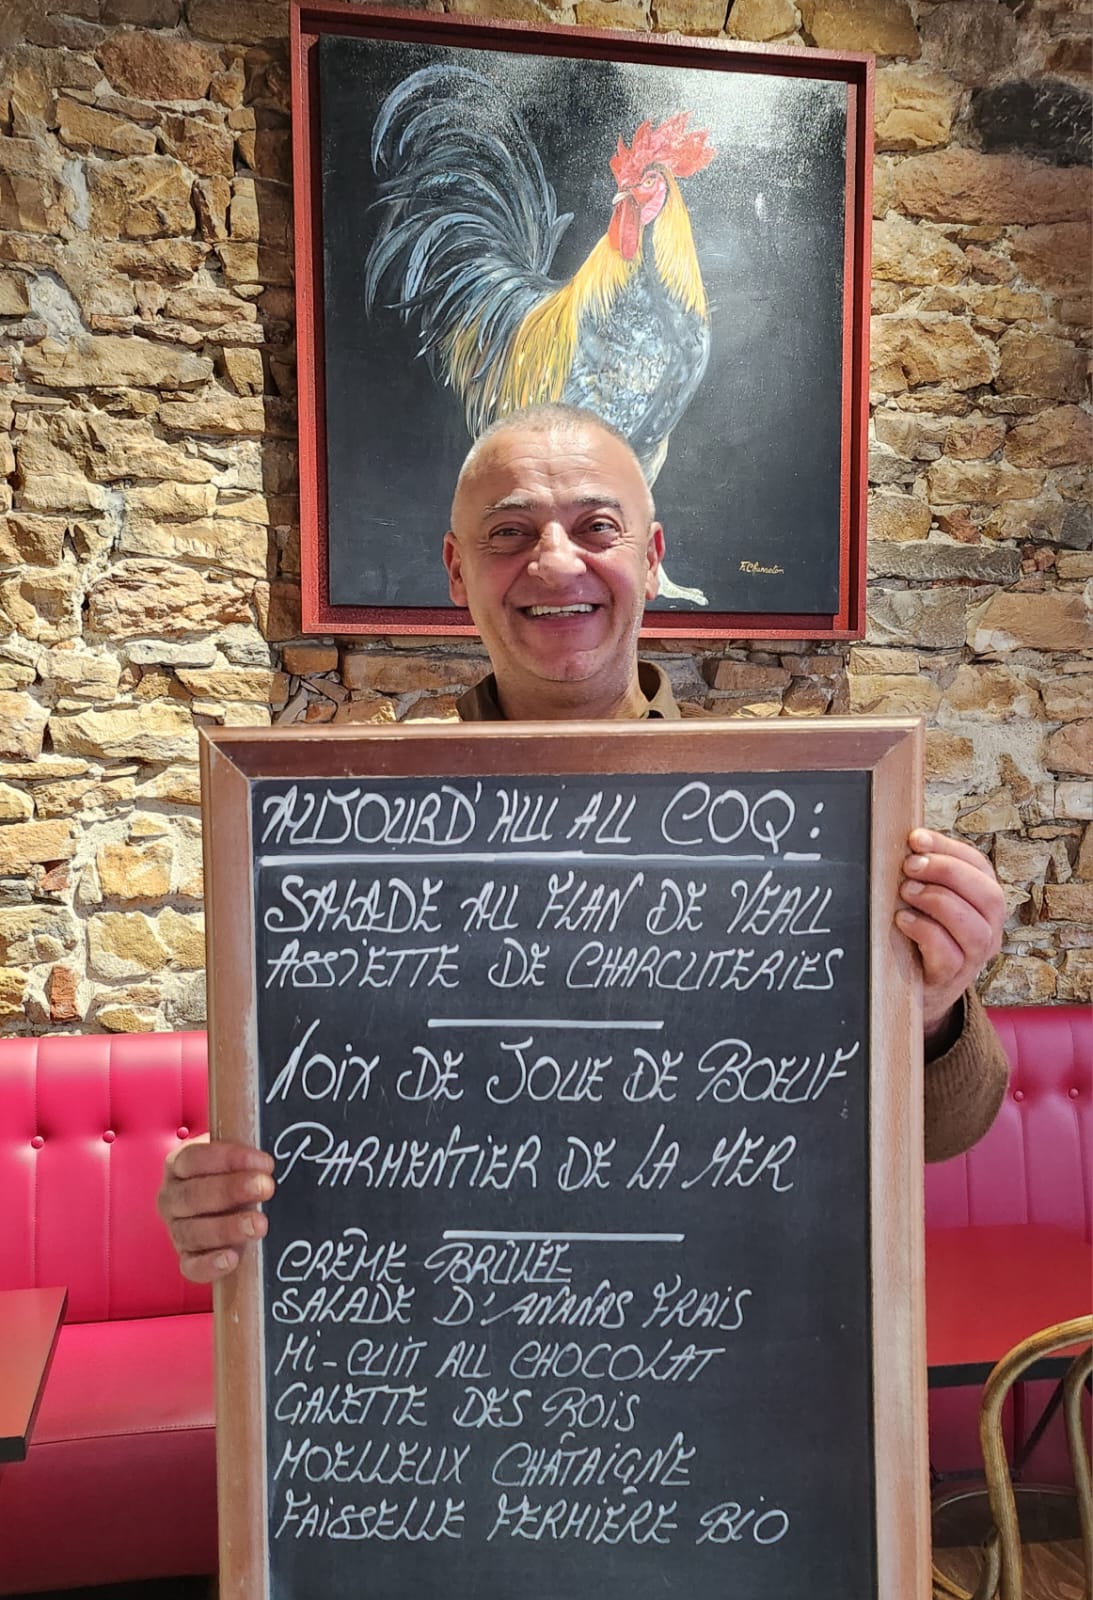 F. Chumelon
AUJOURD'HUI AU COQ :
SALADE AU FLAN DE VEAU
ASSIETTE DE CHARCUTERIES
NOIX DE JOUE DE BOEUF
PARMENTIER DE LA MER
CRÈME BRÛLÉE
SALADE D'ANANAS FRAIS
MI-CUIT AU CHOCOLAT
GALETTE DES ROIS
MOELLEUX CHÂTAIGNE
FAISSELLE FERMIÈRE BIO